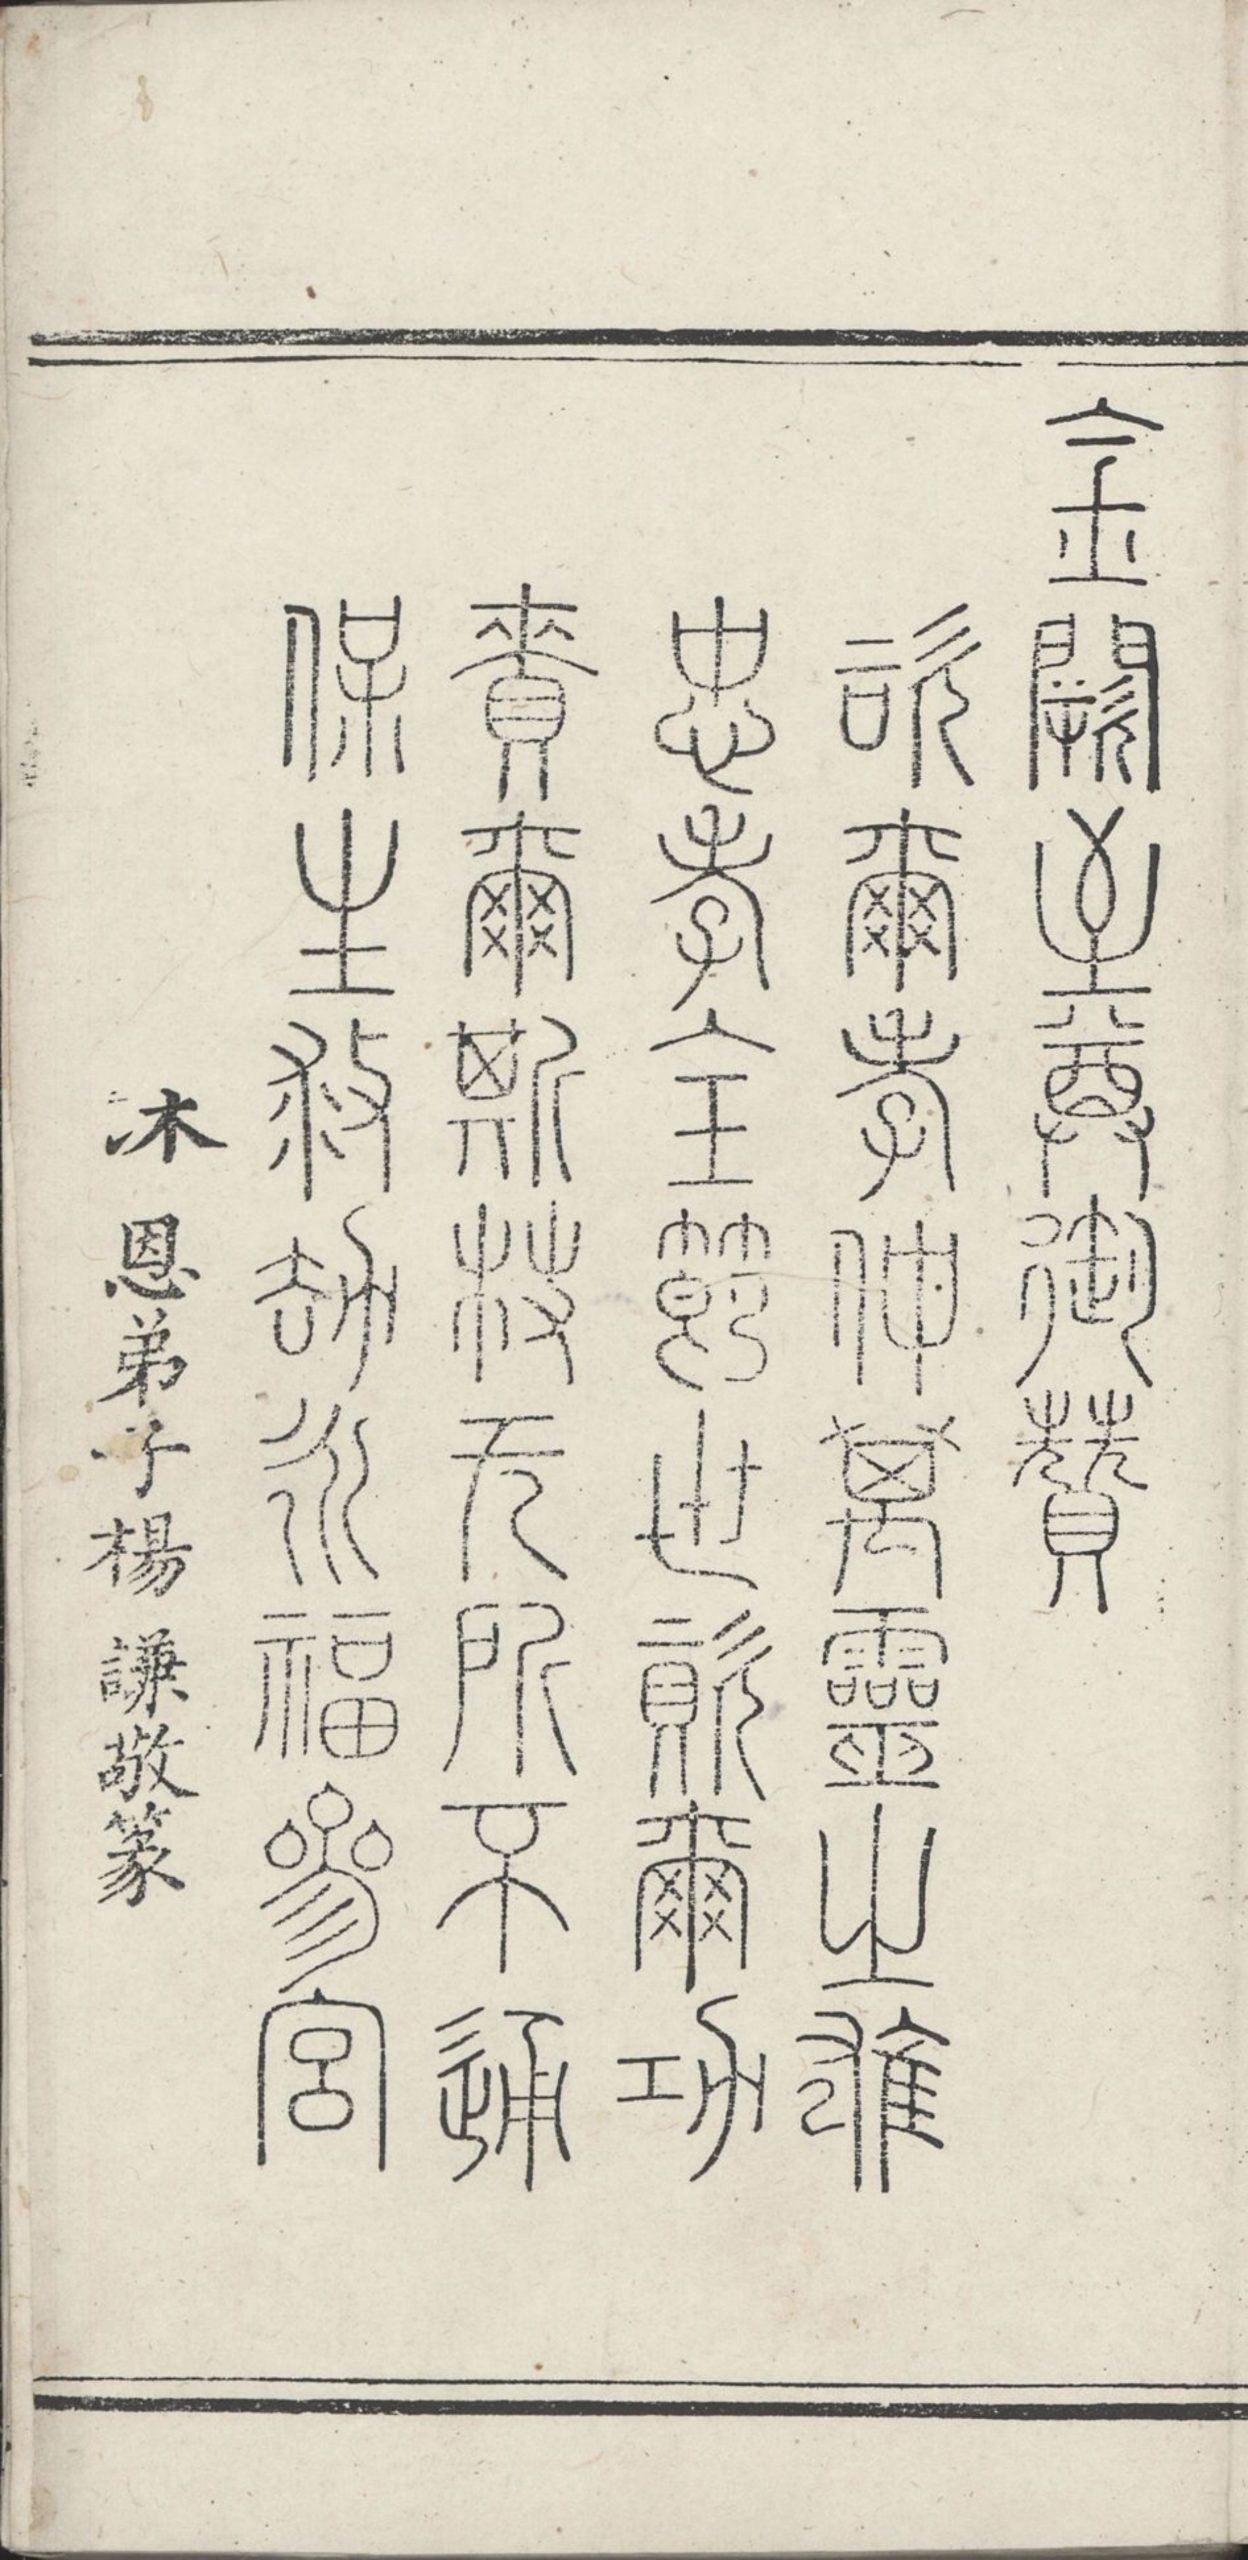 金闕至尊御贊
咨爾孝仲萬靈之雄
忠孝全節世資爾功
賚爾斯枝无所不通
保生救劫永福參宮
沐恩弟子楊謙敬篆